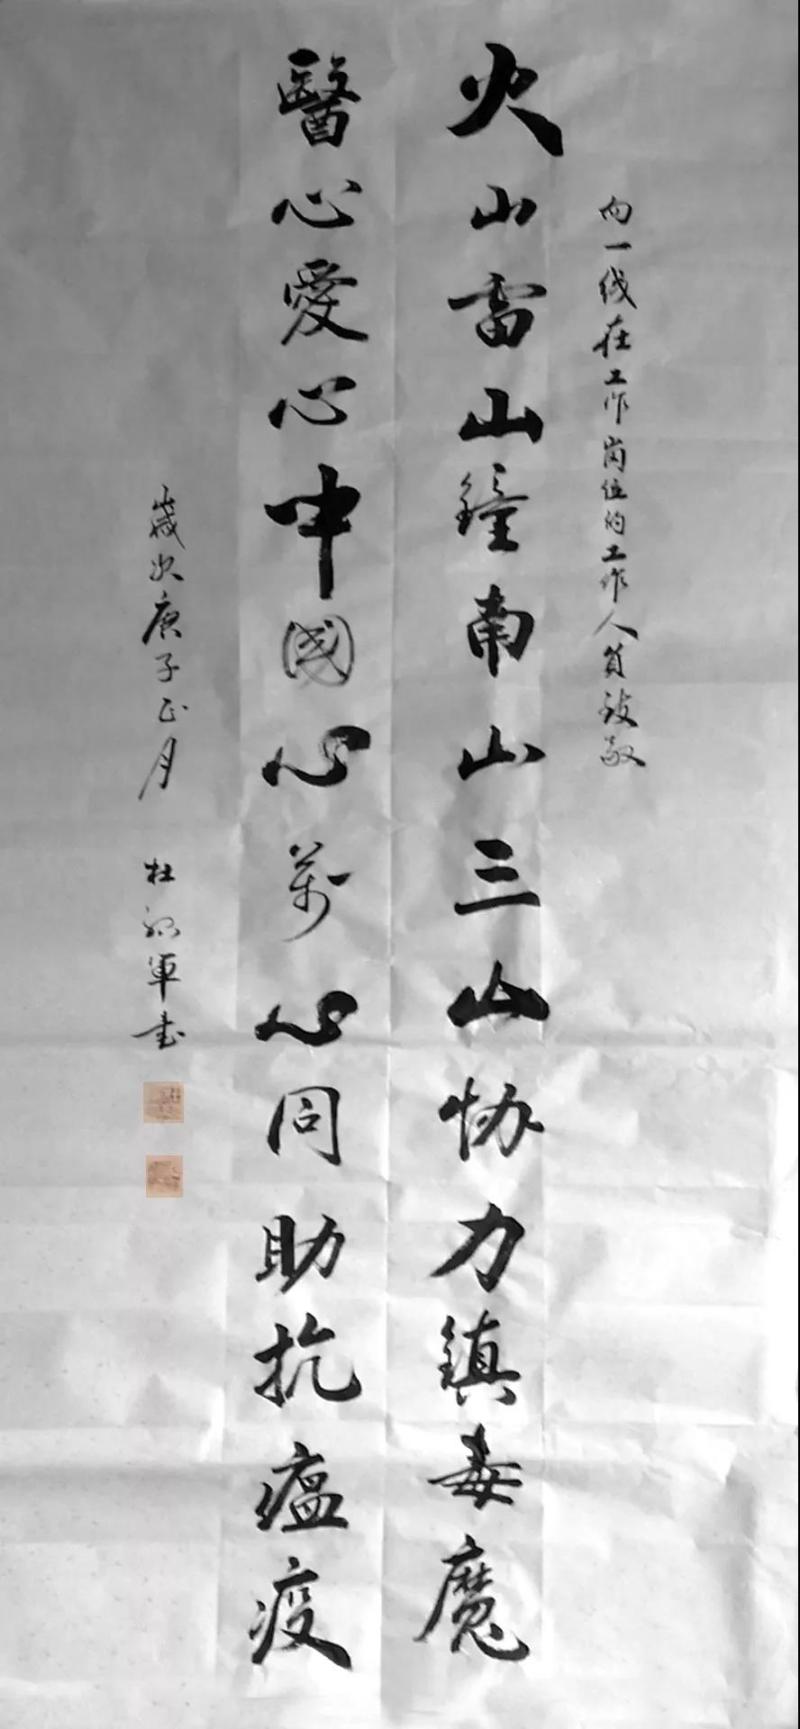 向一线在工作岗位的工作人员致敬
火山雷山鐘南山三山协力鎮毒魔
醫心愛心中國心萬心同助抗瘟疫
嵗次庚子正月
杜 軍书